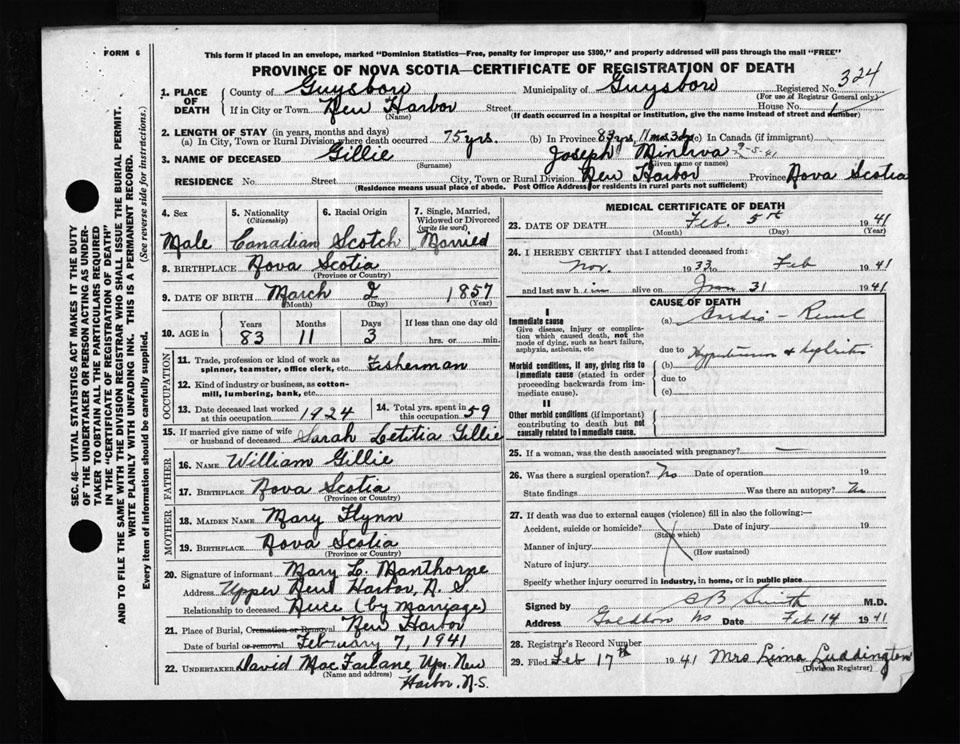 FORM 6
This form if placed in an envelope, marked "Dominion Statistics—Free, penalty for improper use $300," and properly addressed will pass through the mail "FREE"
PROVINCE OF NOVA SCOTIA—CERTIFICATE OF REGISTRATION OF DEATH
324
SEC. 46—VITAL STATISTICS ACT MAKES IT THE DUTY
OF THE UNDERTAKER OR PERSON ACTING AS UNDER-
TAKER TO OBTAIN ALL THE PARTICULARS REQUIRED
IN THE "CERTIFICATE OF REGISTRATION OF DEATH"
AND TO FILE THE SAME WITH THE DIVISION REGISTRAR WHO SHALL ISSUE THE BURIAL PERMIT.
WRITE PLAINLY WITH UNFADING INK. THIS IS A PERMANENT RECORD.
Every item of information should be carefully supplied. (See reverse side for instructions.)
1. PLACE OF DEATH
County of Guysboro Municipality of Guysboro Registered No.
(For use of Registrar General only)
If in City or Town New Harbor Street House No.
(Name) (If death occurred in a hospital or institution, give the name instead of street and number)
2. LENGTH OF STAY (in years, months and days)
(a) In City, Town or Rural Division where death occurred 75 yrs. (b) In Province 83 yrs 11 mos 3 dys (c) In Canada (if immigrant)
3. NAME OF DECEASED Gillie Joseph Minerva 2-5-41
(Surname) (Given name or names)
RESIDENCE No. Street City, Town or Rural Division New Harbor Province Nova Scotia
(Residence means usual place of abode. Post Office Address for residents in rural parts not sufficient)
4. Sex
Male
5. Nationality
(Citizenship)
Canadian
6. Racial Origin
Scotch
7. Single, Married,
Widowed or Divorced
(write the word)
Married
8. BIRTHPLACE Nova Scotia
(Province or Country)
9. DATE OF BIRTH March 2 1857
(Month) (Day) (Year)
10. AGE in
Years Months Days If less than one day old
83 11 3 hrs. or min.
OCCUPATION
11. Trade, profession or kind of work as
spinner, teamster, office clerk, etc. Fisherman
12. Kind of industry or business, as cotton-
mill, lumbering, bank, etc.
13. Date deceased last worked
at this occupation 1924
14. Total yrs. spent in
this occupation 59
15. If married give name of wife
or husband of deceased Sarah Letitia Gillie
FATHER
16. NAME William Gillie
17. BIRTHPLACE Nova Scotia
(Province or Country)
MOTHER
18. MAIDEN NAME Mary Flynn
19. BIRTHPLACE Nova Scotia
(Province or Country)
20. Signature of informant Mary L. Manthorne
Address Upper New Harbor, N. S.
Relationship to deceased Neice (by Marriage)
21. Place of Burial, Cremation or Removal New Harbor
Date of burial or removal February 7, 1941
22. UNDERTAKER David MacFarlane, Upr. New
(Name and address) Harbor, N.S.
MEDICAL CERTIFICATE OF DEATH
23. DATE OF DEATH Feb. 5th 1941
(Month) (Day) (Year)
24. I HEREBY CERTIFY that I attended deceased from:
Nov. 1933 to Feb 1941
and last saw him alive on Jan 31 1941
CAUSE OF DEATH
I
Immediate cause
Give disease, injury or complica-
tion which caused death, not the
mode of dying, such as heart failure,
asphyxia, asthenia, etc
(a) Cardio-Renal
due to
Morbid conditions, if any, giving rise to
immediate cause (stated in order
proceeding backwards from im-
mediate cause).
(b) Hypertension & nephritis
due to
(c)
II
Other morbid conditions (if important)
contributing to death but not
causally related to immediate cause.
25. If a woman, was the death associated with pregnancy? —
26. Was there a surgical operation? No Date of operation 19
State findings Was there an autopsy? No
27. If death was due to external causes (violence) fill in also the following:—
Accident, suicide or homicide? Date of injury 19
(State which)
Manner of injury
(How sustained)
Nature of injury
Specify whether injury occurred in industry, in home, or in public place
Signed by C B Smith M.D.
Address Goldboro NS Date Feb 14 1941
28. Registrar's Record Number
29. Filed Feb 17th 1941 Mrs Luddington
(Division Registrar)